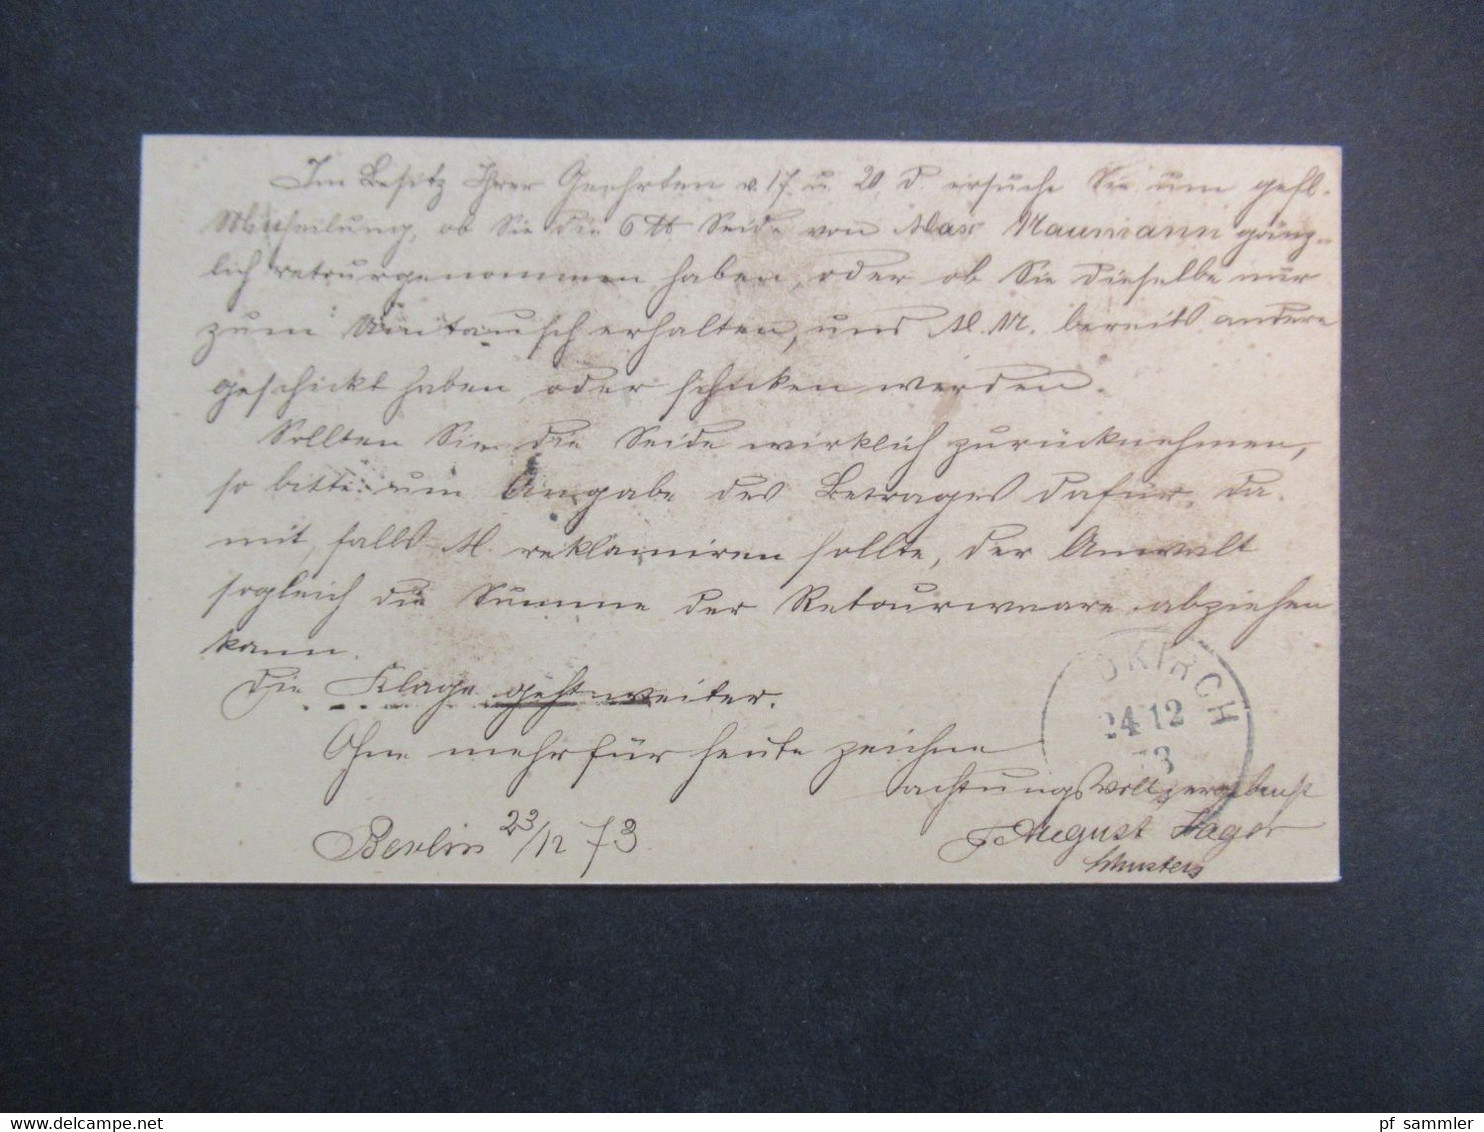 Im Besitz Ihrer Geehrten v. 17. u. 20. d. ersuche Sie um gefl.
Mittheilung, ob Sie die 6 ℔ Seide von Max Naumann gänz-
lich retourgenommen haben, oder ob Sie dieselbe nur
zum Umtausch erhalten, und M. N. bereits andere
geschickt haben oder schicken werden.
Sollten Sie die Seide wirklich zurücknehmen,
so bitte um Angabe des Betrages dafür, da-
mit, falls N. reklamiren sollte, der Anwalt
sogleich die Summe der Retourwaare abziehen
kann.
Die Klage geht weiter.
Ohne mehr für heute zeichne
achtungsvoll ergebenst
August Hager
Berlin 23/12 73
DKIRCH
24 12
73
www.delcampe.net
pf_sammler